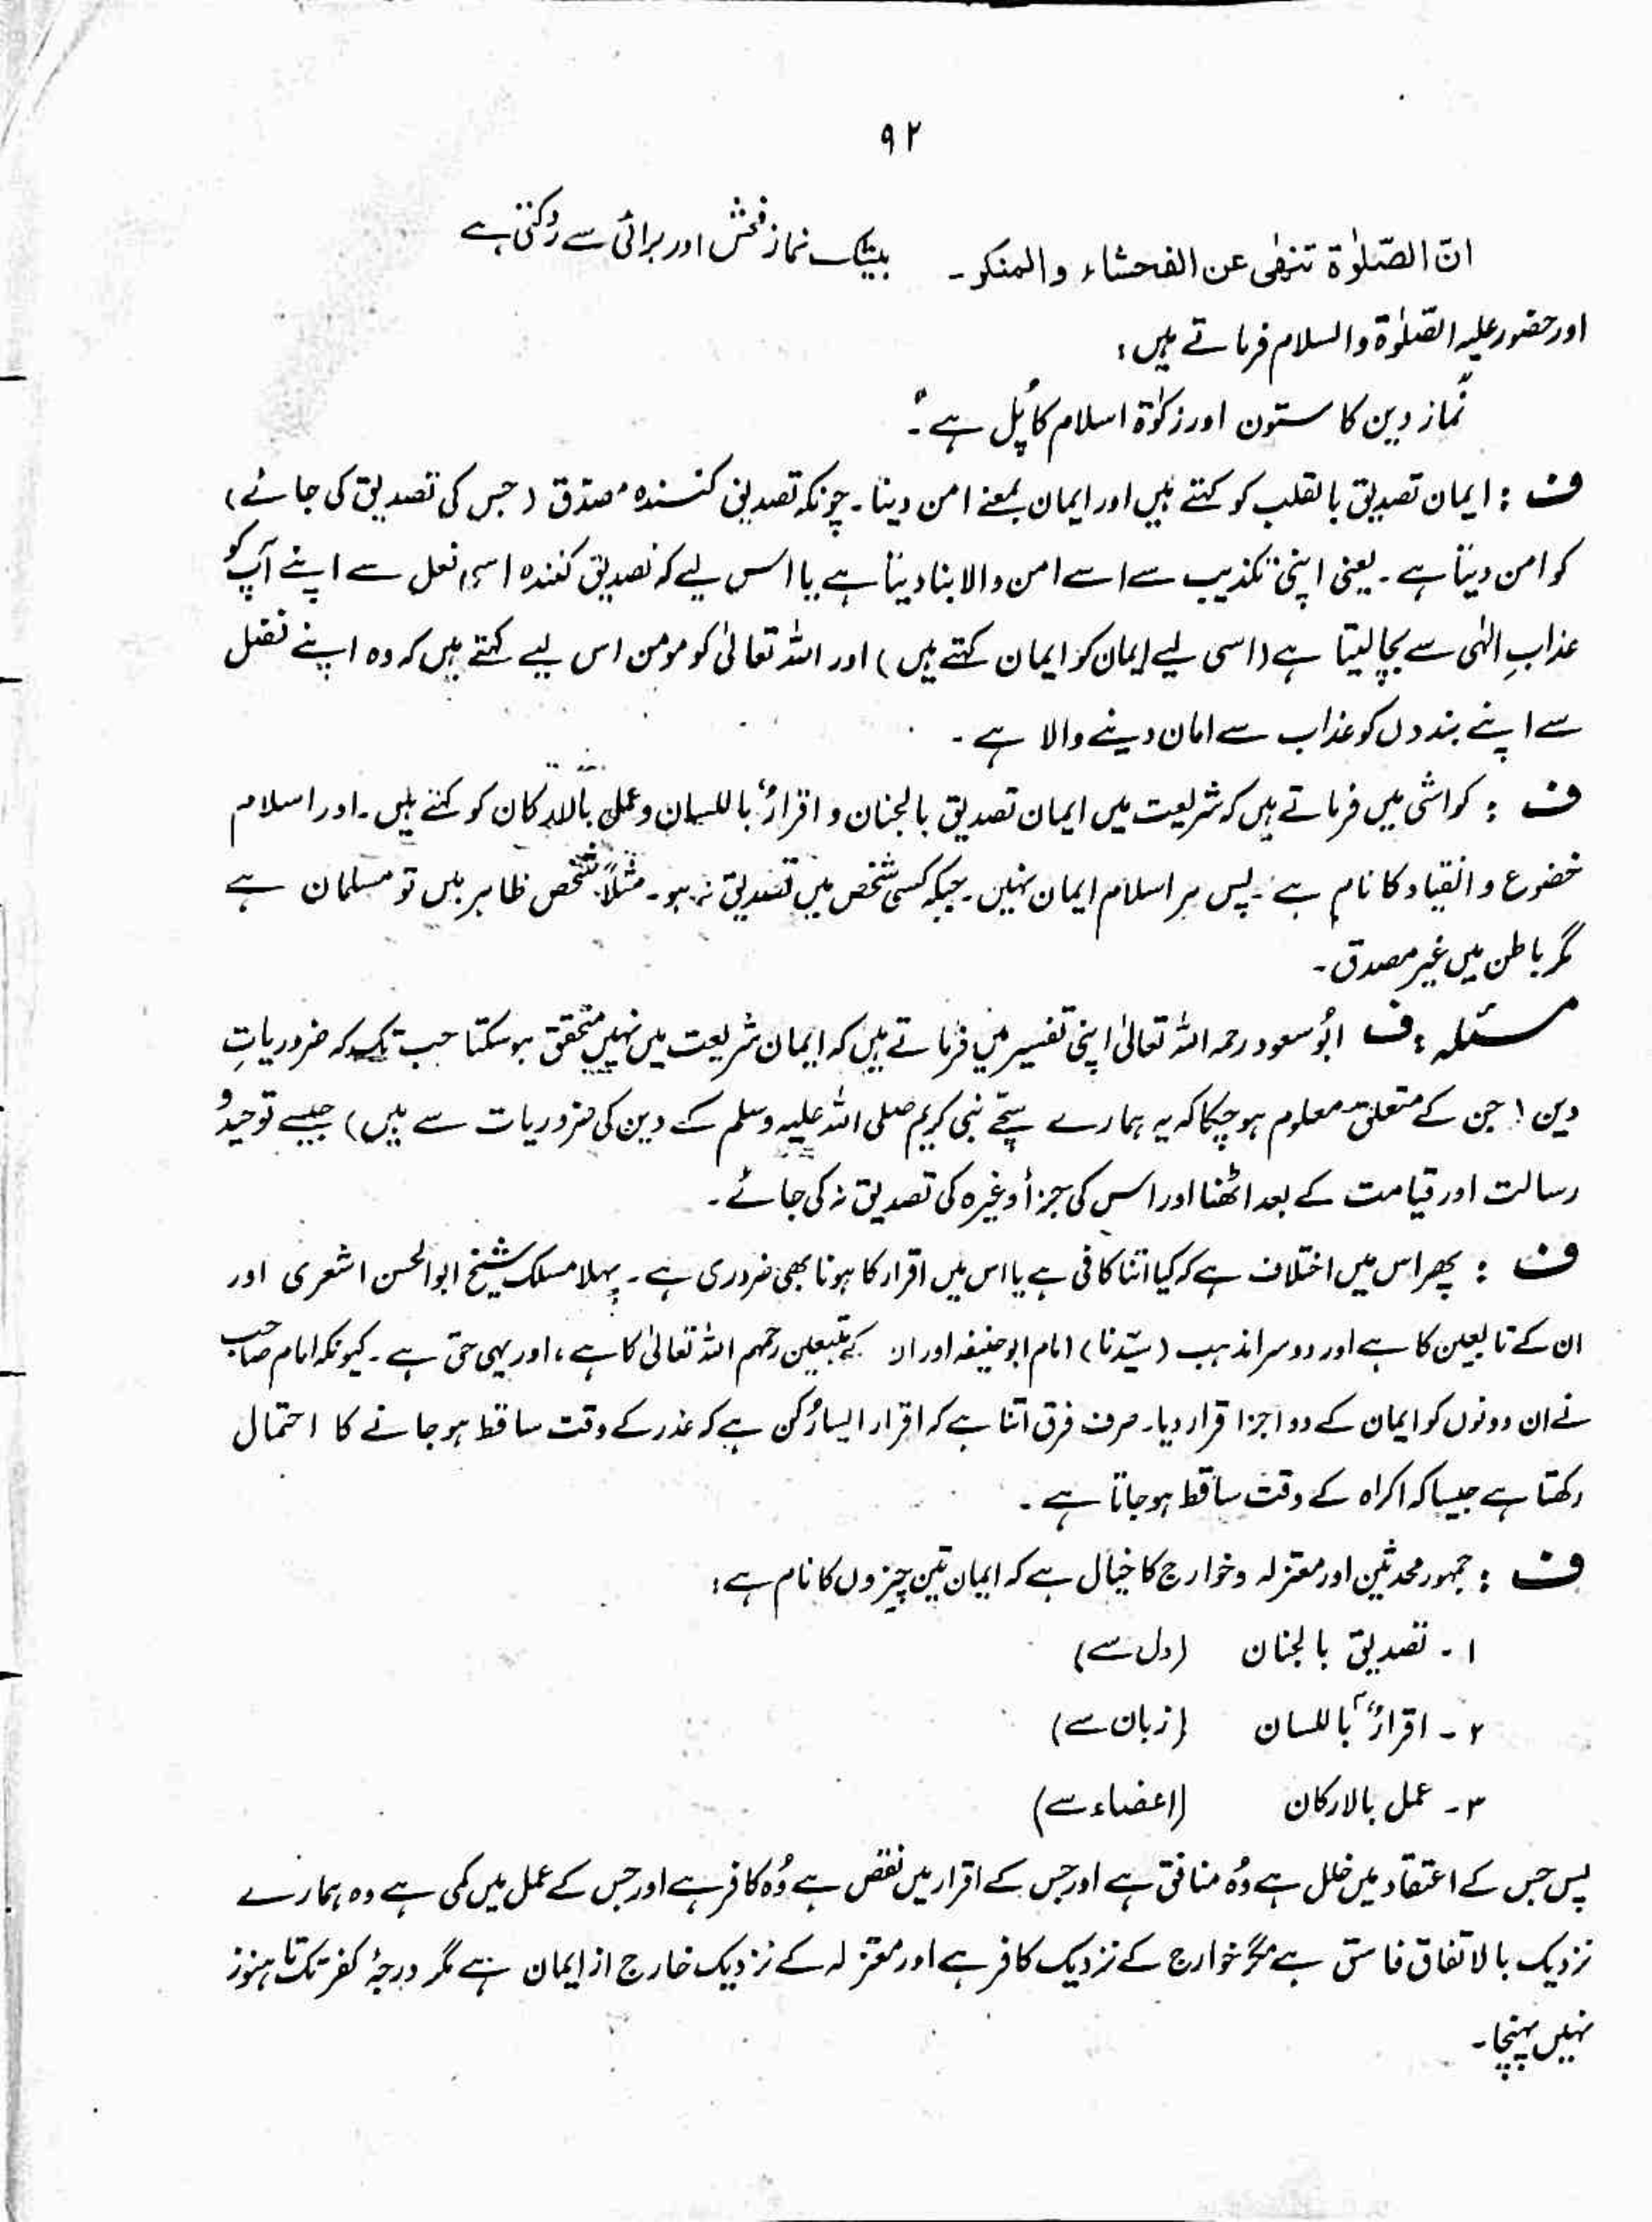 ۹۲
انّ الصّلوٰة تنھٰی عن الفحشاء والمنکر۔ بیشک نماز فحش اور برائی سے روکتی ہے
اور حضور علیہ الصّلوٰۃ والسلام فرماتے ہیں:
"نماز دین کا ستون اور زکوٰۃ اسلام کا پُل ہے"۔
ف : ایمان تصدیق بالقلب کو کہتے ہیں اور ایمان بمعنے امن دینا۔ چونکہ تصدیق کنندہ مصدّق (جس کی تصدیق کی جائے)
کو امن دیتا ہے۔ یعنی اپنی تکذیب سے اسے امن والا بنا دیتا ہے یا اس لیے کہ تصدیق کنندہ اسی فعل سے اپنے آپ کو
عذابِ الٰہی سے بچا لیتا ہے (اسی لیے ایمان کو ایمان کہتے ہیں) اور اللہ تعالیٰ کو مومن اس لیے کہتے ہیں کہ وہ اپنے فضل
سے اپنے بندوں کو عذاب سے امان دینے والا ہے۔
ف : کواشی میں فرماتے ہیں کہ شریعت میں ایمان تصدیق بالجنان و اقرارٌ باللسان وعمل بالارکان کو کہتے ہیں۔ اور اسلام
خضوع و انقیاد کا نام ہے۔ پس ہر اسلام ایمان نہیں۔ جبکہ کسی شخص میں تصدیق نہ ہو۔ مثلاً شخص ظاہر میں تو مسلمان ہے
مگر باطن میں غیر مصدق۔
مسئلہ : ف ابُو سعود رحمہ اللہ تعالیٰ اپنی تفسیر میں فرماتے ہیں کہ ایمان شریعت میں نہیں متحقق ہو سکتا جب تک کہ ضروریاتِ
دین (جن کے متعلق معلوم ہو چکا کہ یہ ہمارے سچّے نبی کریم صلی اللہ علیہ وسلم کے دین کی ضروریات سے ہیں) جیسے توحید و
رسالت اور قیامت کے بعد اٹھنا اور اس کی جزأ وغیرہ کی تصدیق نہ کی جائے۔
ف : پھر اس میں اختلاف ہے کہ کیا اتنا کافی ہے یا اس میں اقرار کا ہونا بھی ضروری ہے۔ پہلا مسلک شیخ ابوالحسن اشعری اور
ان کے تابعین کا ہے اور دوسرا مذہب (سیّدنا) امام ابوحنیفہ اور ان کے متبعین رحمہم اللہ تعالیٰ کا ہے، اور یہی حق ہے۔ کیونکہ امام صاحب
نے ان دونوں کو ایمان کے دو اجزا قرار دیا۔ صرف فرق اتنا ہے کہ اقرار ایسا رُکن ہے کہ عذر کے وقت ساقط ہو جانے کا احتمال
رکھتا ہے جیسا کہ اکراہ کے وقت ساقط ہو جاتا ہے۔
ف : جمہور محدثین اور معتزلہ و خوارج کا خیال ہے کہ ایمان تین چیزوں کا نام ہے:
۱۔ تصدیق بالجنان (دل سے)
۲۔ اقرارٌ باللسان (زبان سے)
۳۔ عمل بالارکان (اعضاء سے)
پس جس کے اعتقاد میں خلل ہے وُہ منافق ہے اور جس کے اقرار میں نقص ہے وُہ کافر ہے اور جس کے عمل میں کمی ہے وہ ہمارے
نزدیک بالاتفاق فاسق ہے مگر خوارج کے نزدیک کافر ہے اور معتزلہ کے نزدیک خارج از ایمان ہے مگر درجۂ کفر تک تاہنوز
نہیں پہنچا۔